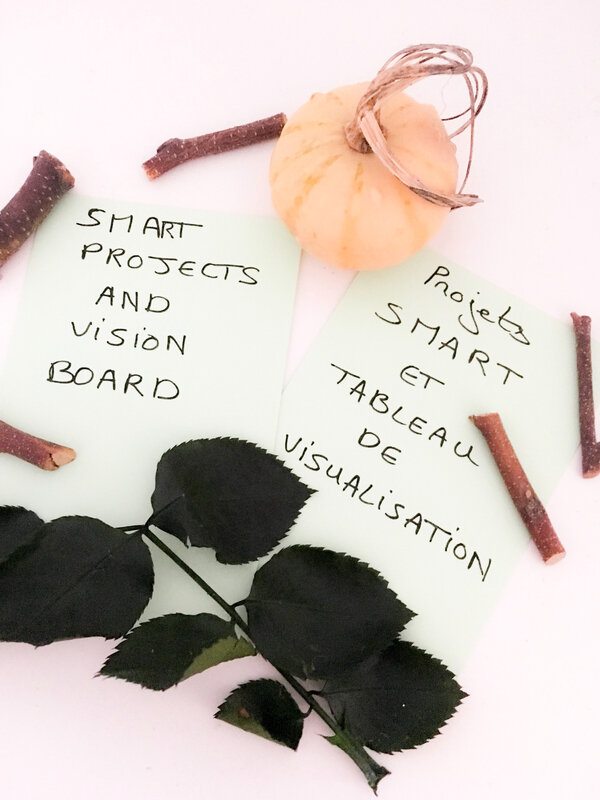 SMART
PROJECTS
AND
VISION
BOARD
Projets
SMART
ET
TABLEAU
DE
VISUALISATION